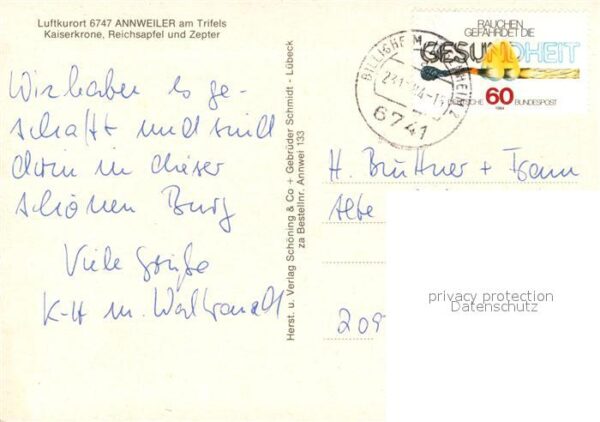 Luftkurort 6747 ANNWEILER am Trifels
Kaiserkrone, Reichsapfel und Zepter
Wir haben es ge-
schafft und sind
drin in dieser
schönen Burg
Viele Grüße
K-H u. Waltraudt
Herst. u. Verlag Schöning & Co + Gebrüder Schmidt - Lübeck
za Bestellnr. Annwei 133
BILLIGHEIM
6741
RAUCHEN
GEFÄHRDET DIE
GESUNDHEIT
60
DEUTSCHE BUNDESPOST
1984
H. Brüttner +
Alte
209
privacy protection
Datenschutz